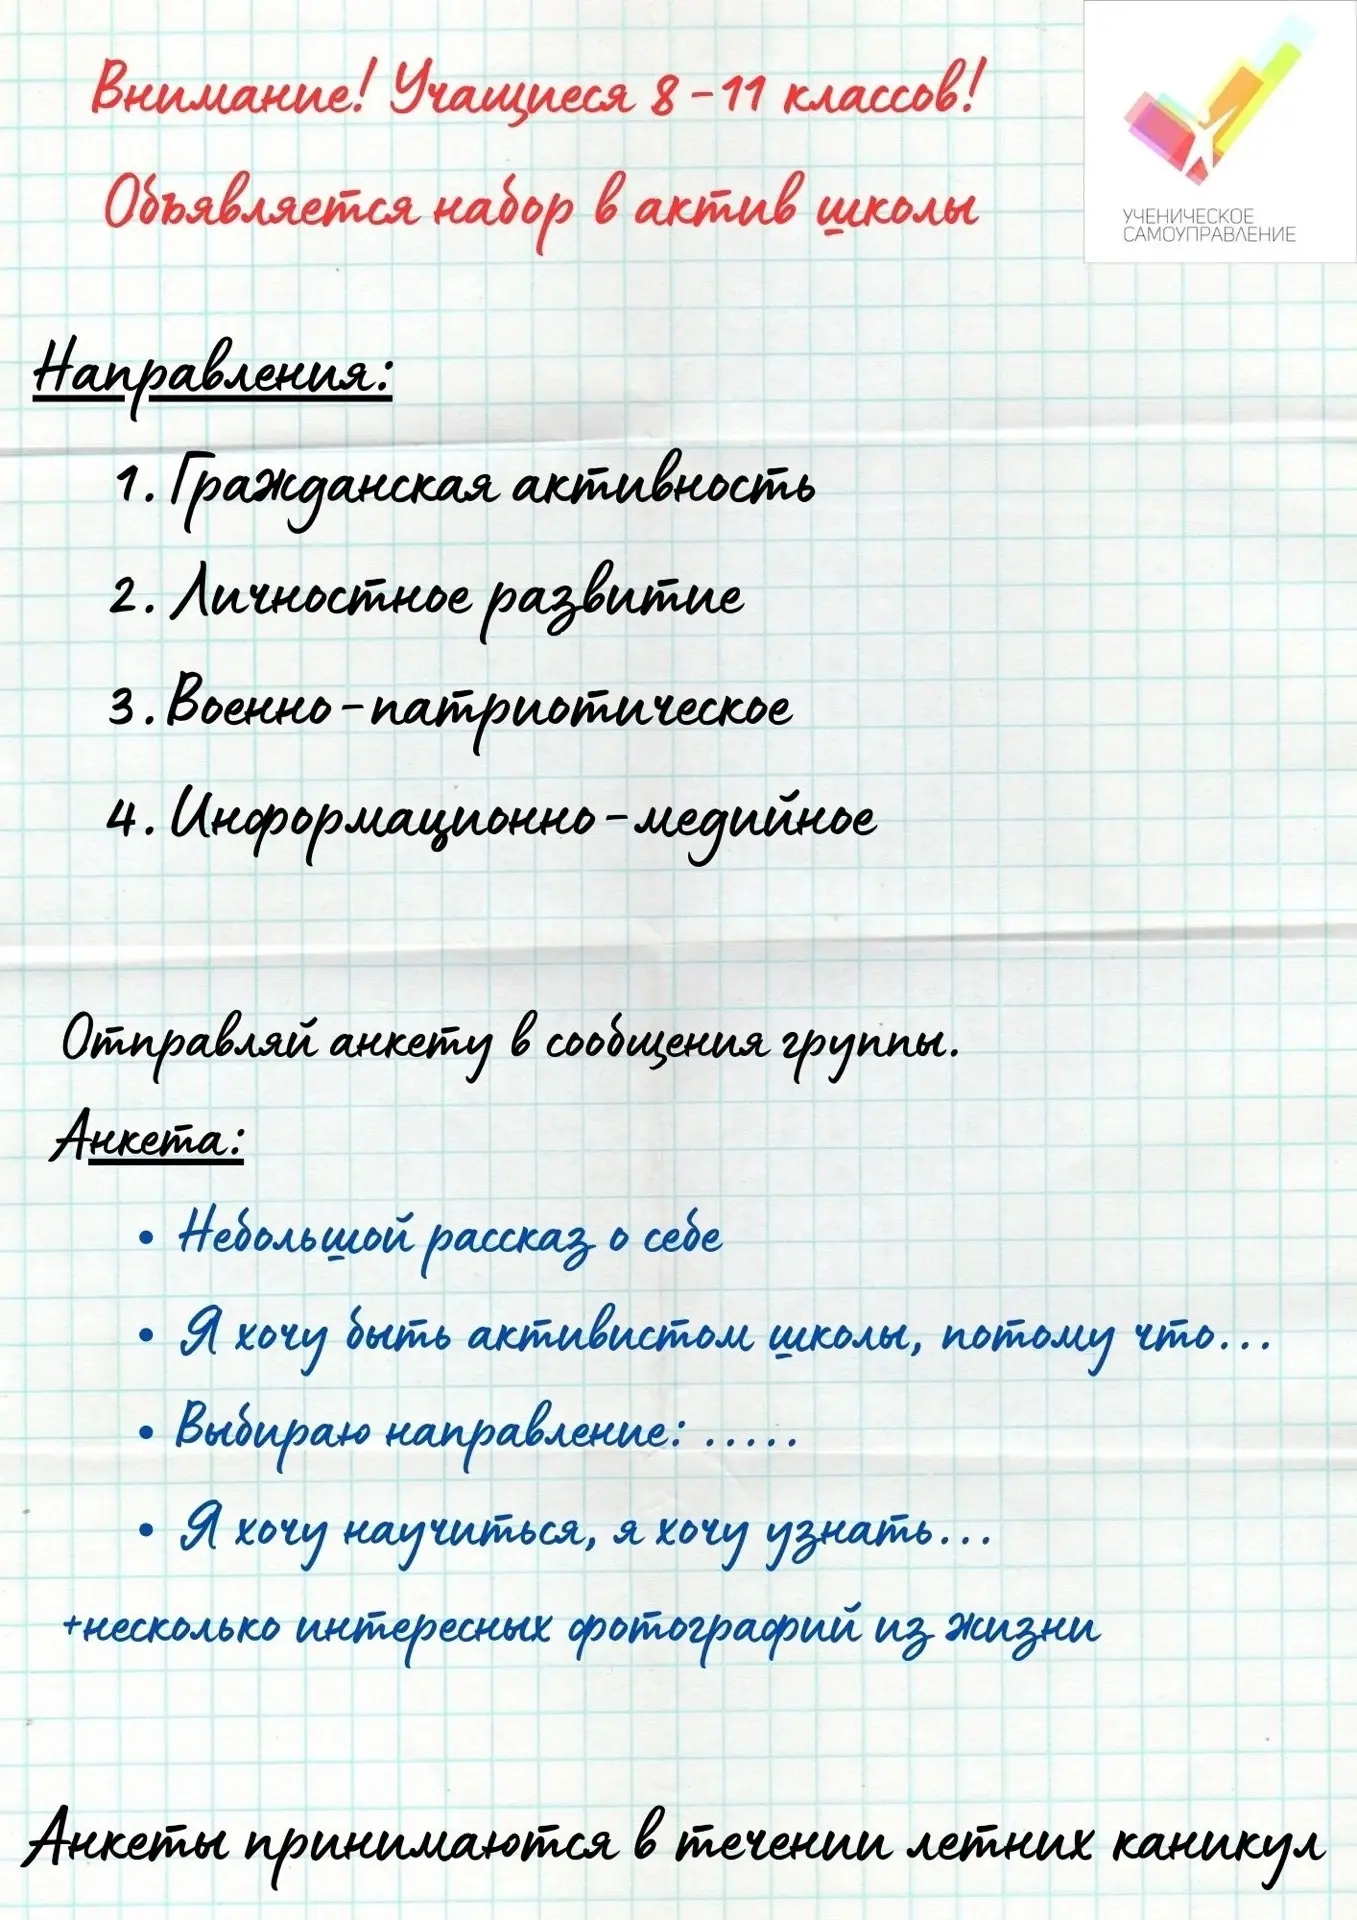 Внимание! Учащиеся 8-11 классов!
Объявляется набор в актив школы
УЧЕНИЧЕСКОЕ
САМОУПРАВЛЕНИЕ
Направления:
1. Гражданская активность
2. Личностное развитие
3. Военно-патриотическое
4. Информационно-медийное
Отправляй анкету в сообщения группы.
Анкета:
• Небольшой рассказ о себе
• Я хочу быть активистом школы, потому что...
• Выбираю направление: .....
• Я хочу научиться, я хочу узнать...
+несколько интересных фотографий из жизни
Анкеты принимаются в течении летних каникул